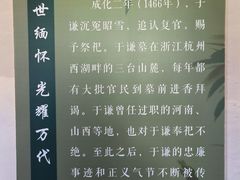 世缅怀 光耀万代
成化二年（1466年），于
谦沉冤昭雪，追认复官，赐
予祭祀。于谦墓在浙江杭州
西湖畔的三台山麓，每年都
有大批官民到墓前进香拜
谒。于谦曾任过职的河南、
山西等地，也对于谦奉祀不
绝。至此之后，于谦的忠廉
事迹和正义气节不断被传